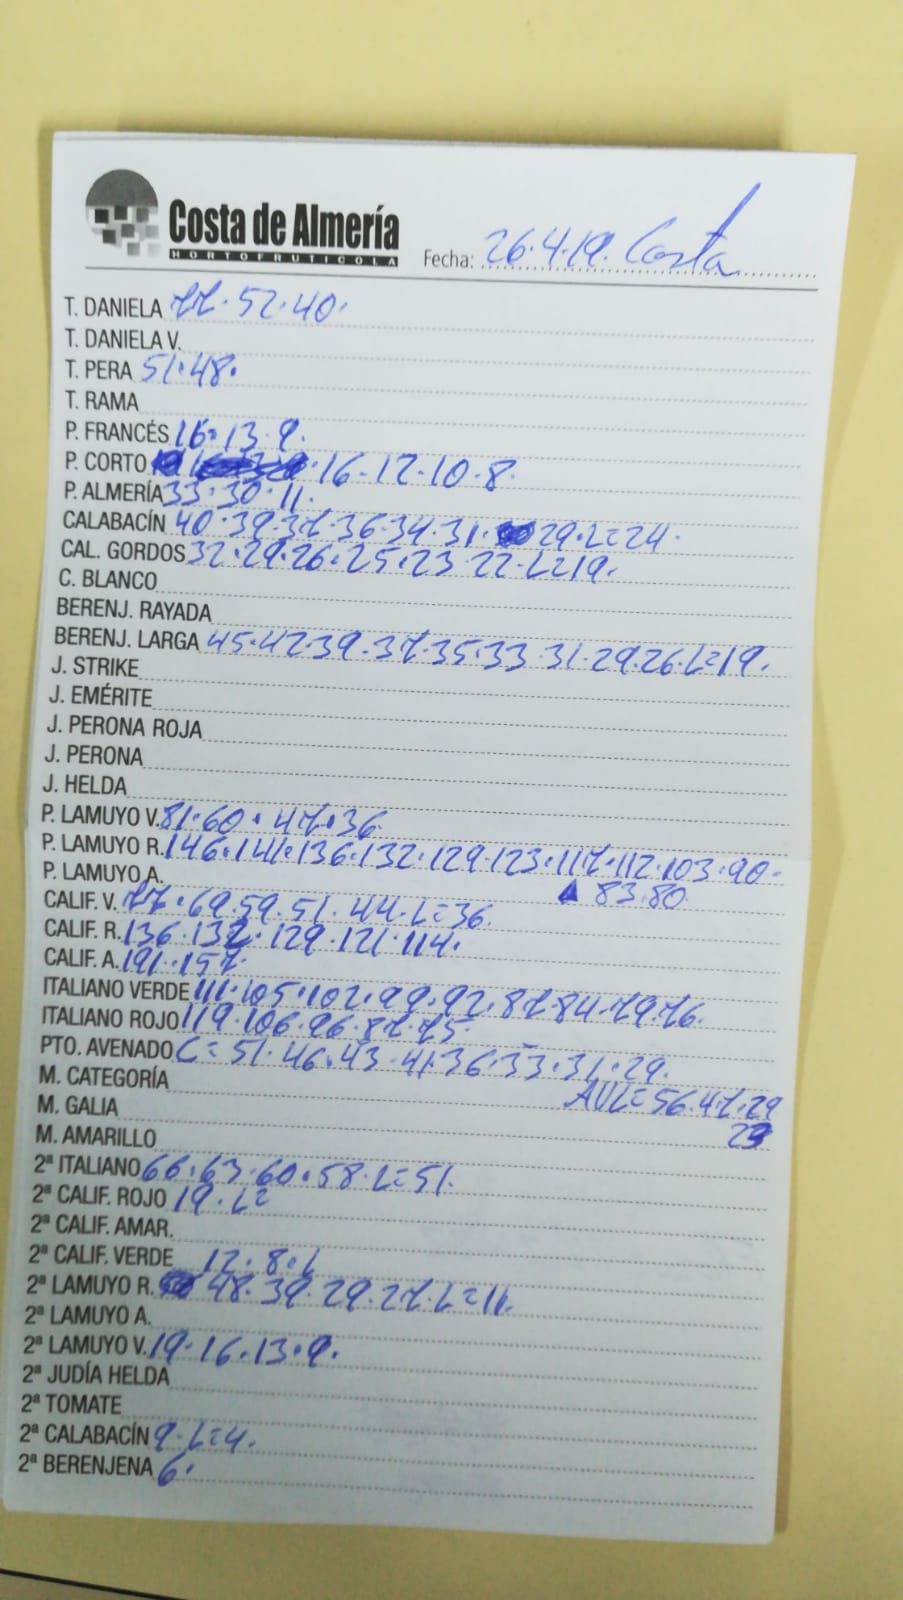 Costa de Almería
HORTOFRUTICOLA
Fecha: 26.4.19. Costa
T. DANIELA 77.52.40.
T. DANIELA V.
T. PERA 51.48.
T. RAMA
P. FRANCÉS 16.13.9.
P. CORTO .16-12.10.8.
P. ALMERÍA 33.30.11.
CALABACÍN 40.39.37.36.34.31. 29.L=24.
CAL. GORDOS 32.29.26.25.23.22.L=19.
C. BLANCO
BERENJ. RAYADA
BERENJ. LARGA 45.42.39.37.35.33.31.29.26.L=19.
J. STRIKE
J. EMÉRITE
J. PERONA ROJA
J. PERONA
J. HELDA
P. LAMUYO V. 81.60.47.36.
P. LAMUYO R. 146.141.136.132.129.123.117.112.103.90.
P. LAMUYO A. 83.80.
CALIF. V. 77.69.59.51.44.L=36.
CALIF. R. 136.132.129.121.114.
CALIF. A. 191.157.
ITALIANO VERDE 111.105.102.99.92.87.84.79.76.
ITALIANO ROJO 119.106.96.87.75.
PTO. AVENADO C=51.46.43.41.36.33.31.29.
M. CATEGORÍA AVL=56.47.29
M. GALIA
M. AMARILLO
2ª ITALIANO 66.63.60.58.L=51.
2ª CALIF. ROJO 19.L=
2ª CALIF. AMAR.
2ª CALIF. VERDE 12.8.L
2ª LAMUYO R. 48.39.29.27.L=11.
2ª LAMUYO A.
2ª LAMUYO V. 19.16.13.9.
2ª JUDÍA HELDA
2ª TOMATE
2ª CALABACÍN 9.L=4.
2ª BERENJENA 6.